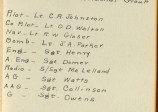 Group
Pilot - Lt C.A. Johnston
Co Pilot - Lt O.D. Watson
Nav - Lt R.W. Glaser
Bomb - Lt J.A. Parker
Eng - Sgt Henry
A. Eng - Sgt Damer
Radio - S/Sgt McLelland
AG - Sgt Watts
AAG - Sgt Collinson
G - Sgt Owens